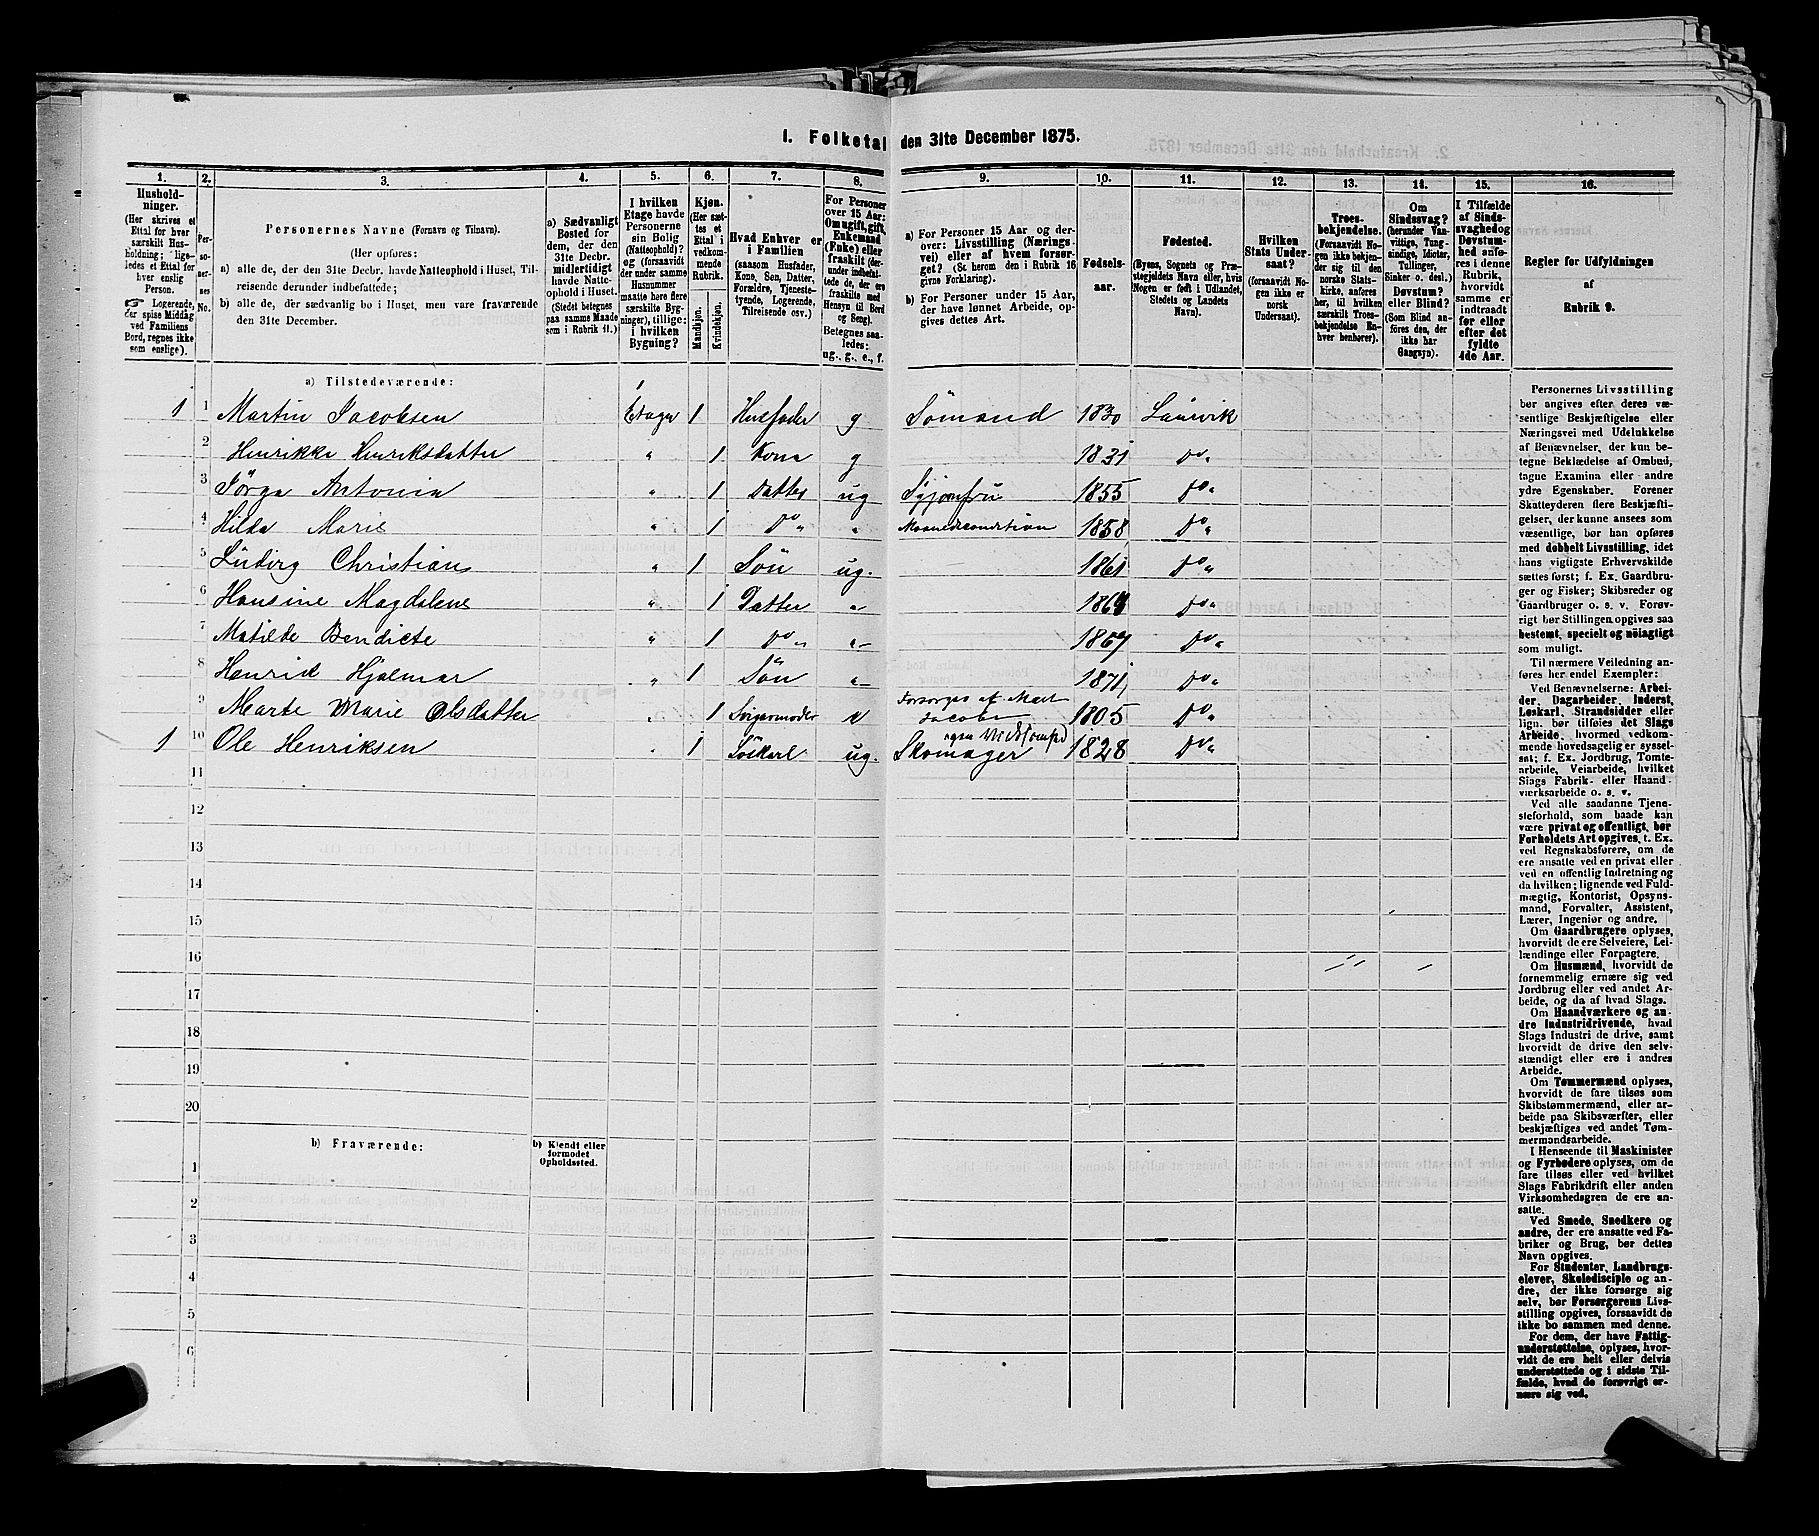 1. Folketal den 31te December 1875.
1. 2. 3. 4. 5. 6. 7. 8. 9. 10. 11. 12. 13. 14. 15. 16.
Husholdninger.
(Her skrives et
Ettal for hver
særskilt Husholdning;
ligeledes et Ettal for
hver enslig
Person.
Logerende,
der spise Middag
ved Familiens
Bord, regnes ikke
som enslige).
Personernes No.
Personernes Navne (Fornavn og Tilnavn).
(Her opføres:
a) alle de, der den 31te Decbr. havde Natteophold i Huset, Tilreisende derunder indbefattede;
b) alle de, der sædvanlig bo i Huset, men vare fraværende
den 31te December.
a) Sædvanligt
Bosted for
dem, der den
31te Decbr.
midlertidigt
havde Natteophold i Huset.
(Stedet betegnes
paa samme Maade
som i Rubrik 11.)
I hvilken
Etage havde
Personerne
sin Bolig
(Natteophold)?
og (forsaavidt
der under samme
Husnummer
maatte høre flere
særskilte Bygninger), tillige:
i hvilken
Bygning?
Kjøn.
(Her sættes et
Ettal i
vedkommende
Rubrik.
Mandkjøn.
Kvindekjøn.
Hvad Enhver er
i Familien
(saasom Husfader,
Kone, Søn, Datter,
Forældre, Tjenestetyende, Logerende,
Tilreisende osv.)
For Personer
over 15 Aar:
Om ugift, gift,
Enkemand
(Enke) eller
fraskilt
Betegnes saaledes:
ug., g., e., f.
a) For Personer 15 Aar og derover: Livsstilling (Næringsvei) eller af hvem forsørget? (Se herom den i Rubrik 16
givne Forklaring).
b) For Personer under 15 Aar,
der have lønnet Arbeide, opgives dettes Art.
Fødselsaar.
Fødested.
(Byens, Sognets og Præstegjeldets Navn eller, hvis
Nogen er født i Udlandet,
Stedets og Landets
Navn).
Hvilken
Stats Undersaat?
(forsaavidt Nogen ikke er
norsk
Undersaat).
Troesbekjendelse.
(Forsaavidt Nogen ikke bekjender sig til den
norske Statskirke, anføres
her, til hvilken
særskilt Troesbekjendelse Enhver henhører).
Om
Sindssvag?
(herunder Vanvittige, Tungsindige, Idioter,
Tullinger,
Sinker o. desl.)
Døvstum?
eller Blind?
(Som Blind anføres den, der
ikke har
Gangsyn).
I Tilfælde
af Sindssvaghed og
Døvstumhed anføres i denne
Rubrik,
hvorvidt
samme er
indtraadt
før eller
efter det
fyldte
4de Aar.
Regler for Udfyldningen
af
Rubrik 9.
a) Tilstedeværende:
1 1 Martin Jacobsen 1 Etage 1 Husfader g Sømand 1830 Laurvik
2 Henrikke Henriksdatter " 1 Kone g 1831 Do "
3 Jørga Antonia " 1 Datter ug Syjomfru 1855 Do "
4 Hilda Marie " 1 Do " " 1858 Do "
5 Ludvig Christian " 1 Søn ug. 1861 Do "
6 Hansine Magdalene " 1 Datter " Do "
7 Matilde Bendicte " 1 Do " " 1867 Do "
8 Henrid Hjalmar " 1 Søn " 1871 Do "
9 Marte Marie Olsdatter " 1 Svigermoder e Forsørges af Mart. Jacobs 1805 Do "
1 10 Ole Henriksen " 1 Løskarl ug. Skomager 1828 Do "
11
12
13
14
15
16
17
18
19
20
b) Fraværende:
b) Kjendt eller
formodet
Opholdssted.
1
2
3
4
5
6
Personernes Livsstilling
bør angives efter deres væsentlige Beskjæftigelse eller
Næringsvei med Udelukkelse
af Benævnelser, der kun betegne Beklædelse af Ombud,
tagne Examina eller andre
ydre Egenskaber. Forener
Skatteyderen flere Beskjæftigelser, der kunne ansees som
væsentlige, bør han opføres
med dobbelt Livsstilling, idet
hans vigtigste Erhvervskilde
sættes først; f. Ex. Gaardbruger og Fisker; Skibsreder og
Gaardbruger o. s. v. Forøvrigt bør Stillingen opgives saa
bestemt, specielt og nöiagtigt
som muligt.
Til nærmere Veiledning anføres her endel Exempler:
Ved Benævnelserne: Arbeider, Dagarbeider, Inderst,
Løskarl, Strandsidder eller
lign. bør tilføies det Slags
Arbeide, hvormed vedkommende hovedsagelig er sysselsat; f. Ex. Jordbrug, Tomtearbeide, Veiarbeide, hvilket
Slags Fabrik- eller Haandværksarbeide o. s. v.
Ved alle saadanne Tjenesteforhold, som baade kan
være privat og offentligt, bør
Forholdets Art opgives, t. Ex.
ved Regnskabsførere, om de
ere ansatte ved en privat eller
ved en offentlig Indretning og
da hvilken; lignende ved Fuldmægtig, Kontorist, Opsynsmand, Forvalter, Assistent,
Lærer, Ingeniør og andre.
Om Gaardbrugere oplyses,
hvorvidt de ere Selveiere, Leilændinge eller Forpagtere.
Om Husmænd, hvorvidt de
fornemmelig ernære sig ved
Jordbrug eller ved andet Arbeide, og da af hvad Slags.
Om Haandværkere og andre Industridrivende, hvad
Slags Industri de drive, samt
hvorvidt de drive den selvstændigt eller ere i andres
Arbeide.
Om Tømmermænd oplyses,
hvorvidt de fare tilsøs som
Skibstømmermænd, eller arbeide paa Skibsværfter, eller
beskjæftiges ved andet Tømmermandsarbeide.
I Henseende til Maskinister
og Fyrbødere oplyses, om de
fare tilsøs eller ved hvilket
Slags Fabrikdrift eller anden
Virksomhedsgren de ere ansatte.
Ved Smede, Snedkere og
andre, der ere ansatte ved Fabriker og Brug, bør dettes
Navn opgives.
For Studenter, Landbrugselever, Skoledisciple og andre, der ikke forsørge sig
selv, bør Forsørgerens Livsstilling opgives, forsaavidt de
ikke bo sammen med denne.
For dem, der have Fattigunderstøttelse, oplyses, hvorvidt de ere helt eller delvis
understøttede og i sidste Tilfælde, hvad de forøvrigt ernære sig ved.